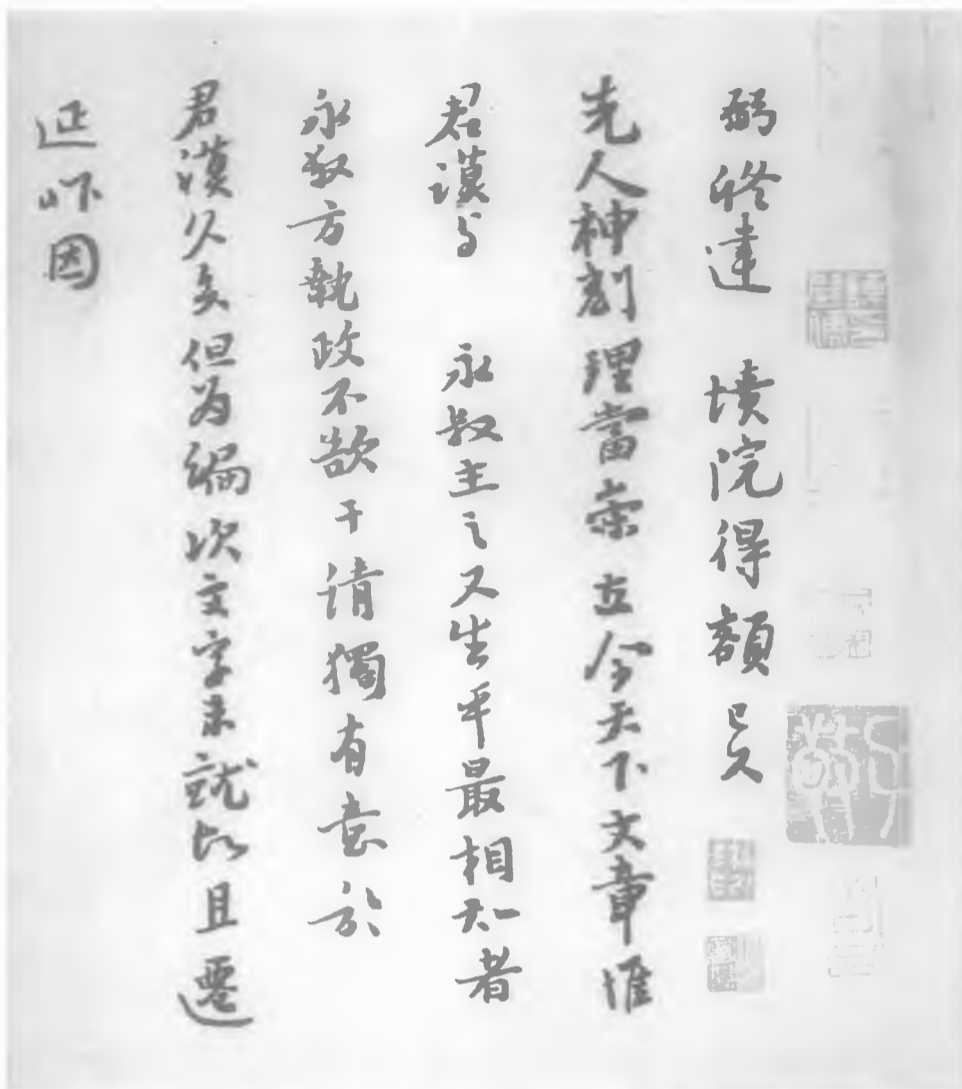 弼修建 墳院得額已久
先人神刻理當崇立今天下文章惟
君謨与 永叔主之又生平最相知者
永叔方執政不欲干請獨有意於
君謨久矣但为編次文字未就故且遷
延昨因